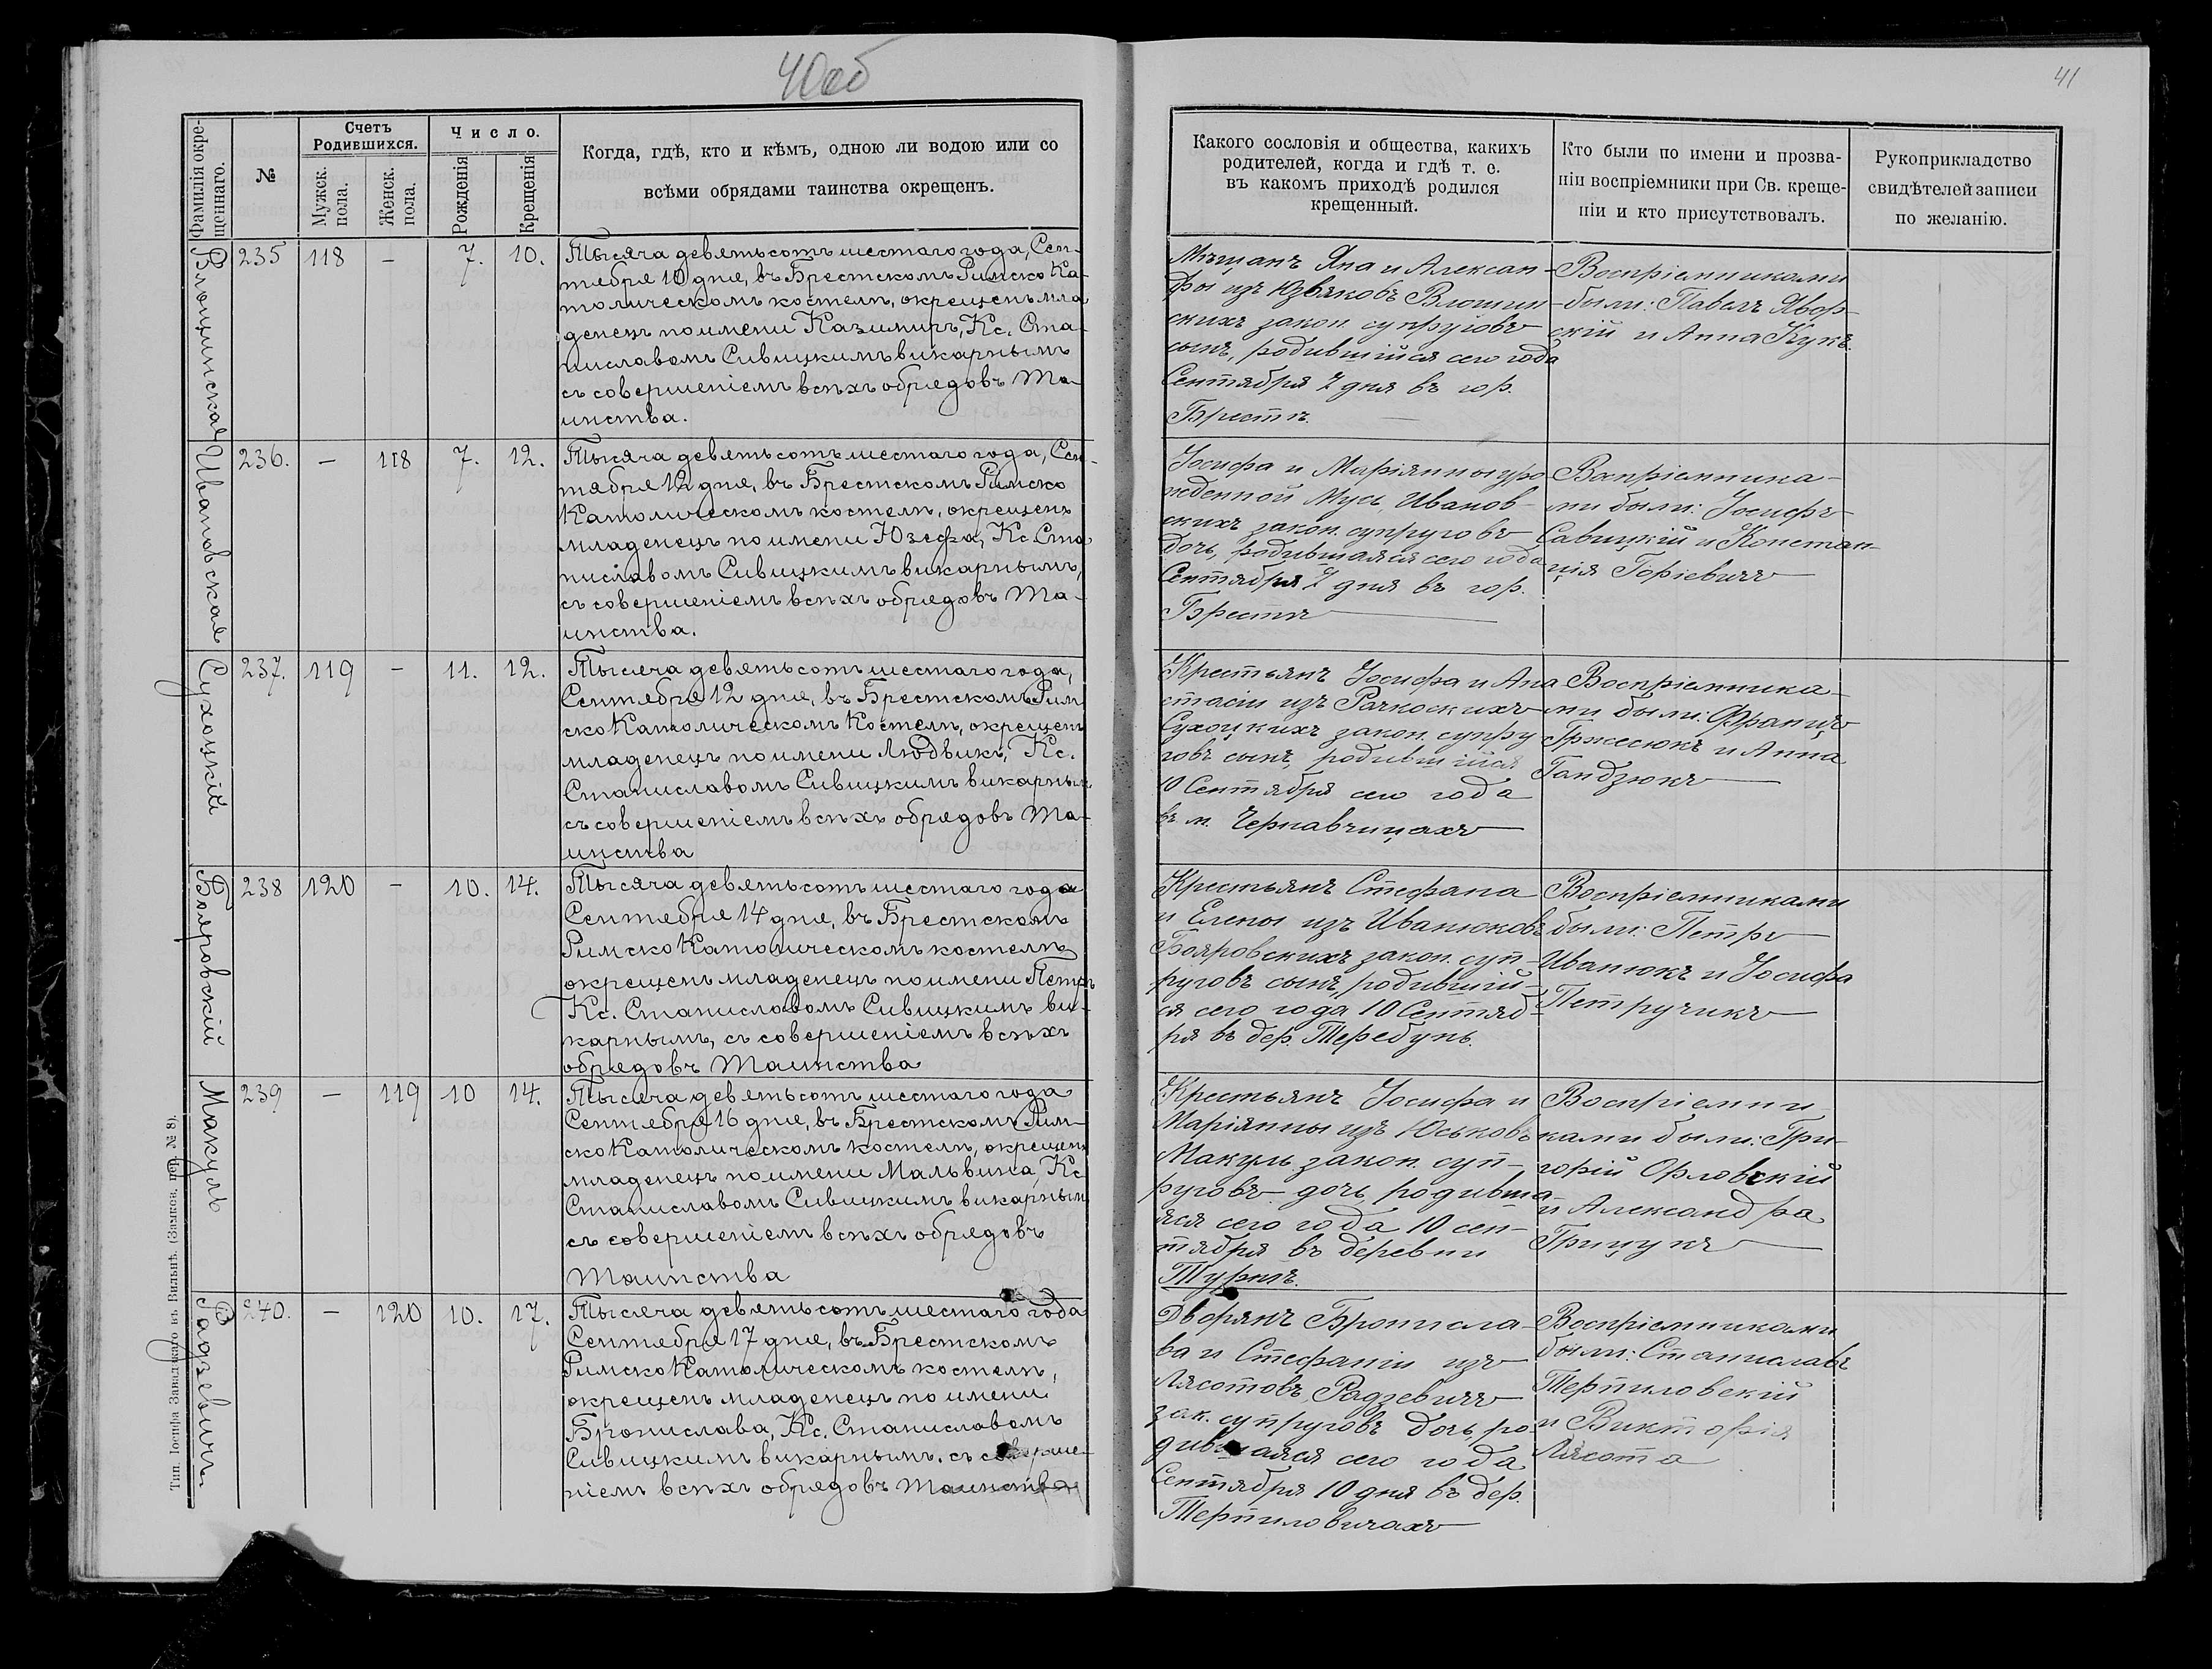 40об
41
Фамилія окре-
щеннаго.
№
Счетъ
Родившихся.
Мужск.
пола.
Женск.
пола.
Число.
Рожденія
Крещенія
Когда, гдѣ, кто и кѣмъ, одною ли водою или со
всѣми обрядами таинства окрещенъ.
Какого сословія и общества, какихъ
родителей, когда и гдѣ т. е.
въ какомъ приходѣ родился
крещенный.
Кто были по имени и прозва-
ніи воспріемники при Св. креще-
ніи и кто присутствовалъ.
Рукоприкладство
свидѣтелей записи
по желанію.
235 118 — 7. 10.
Тысяча девятьсотъ шестаго года, Сен-
тября 10 дня, въ Брестскомъ Римско Ка-
толическомъ костелѣ, окрещенъ мла
денецъ по имени Казимиръ, Кс. Ста-
ниславомъ Сивицкимъ викарнымъ
съ совершеніемъ всѣхъ обрядовъ Та-
инства.
Мѣщанъ Яна и Алексан-
дры изъ
скихъ закон. супруговъ
сынъ, родившійся сего года
Сентября 7 дня въ гор.
Брестѣ.
Воспріемниками
были: Павелъ Явор-
скій и Анна Кукъ.
Ивановская
236. — 118 7. 12.
Тысяча девятьсотъ шестаго года, Сен-
тября 12 дня, въ Брестскомъ Римско
Католическомъ костелѣ, окрещенъ
младенецъ по имени Юзефа, Кс. Ста
ниславомъ Сивицкимъ викарнымъ,
съ совершеніемъ всѣхъ обрядовъ Та-
инства.
Іосифа и Маріянны уро
жденной Мусь Иванов-
скихъ закон. супруговъ
дочь, родившаяся сего года
Сентября 7 дня въ гор.
Брестѣ
Вопріемника-
ми были: Іосифъ
Савицкій и Констан-
ція
Сухоцкій
237. 119 — 11. 12.
Тысяча девятьсотъ шестаго года,
Сентября 12 дня, въ Брестскомъ Рим
ско Католическомъ Костелѣ, окрещенъ
младенецъ по имени Людвикъ, Кс.
Станиславомъ Сивицкимъ викарным
съ совершеніемъ всѣхъ обрядовъ Та-
инства
Крестьянъ Іосифа и Ана
стасіи изъ Рачкоскихъ
Сухоцкихъ закон. супру
говъ сынъ, родившійся
10 Сентября сего года
въ м. Чернавчицахъ
Воспріемника-
ми были: Францъ
Гржесюкъ и Анна
Гандзюкъ
Бояровскій
238 120 — 10. 14.
Тысяча девятьсотъ шестаго года
Сентября 14 дня, въ Брестскомъ
Римско Католическомъ костелѣ
окрещенъ младенецъ по имени Петръ
Кс. Станиславомъ Сивицкимъ ви-
карнымъ, съ совершеніемъ всѣхъ
обрядовъ Таинства
Крестьянъ Стефана
и Елены изъ Иванюковъ
Бояровскихъ закон. суп-
руговъ сынъ, родившій-
ся сего года 10 Сентяб-
ря въ дер. Теребунь.
Воспріемниками
были: Петръ
Иванюкъ и Іосифа
Петручикъ
Макуль
239 — 119 10 14.
Тысяча девятьсотъ шестаго года
Сентября 16 дня, въ Брестскомъ Рим-
ско Католическомъ костелѣ, окрещенъ
младенецъ по имени Мальвина, Кс
Станиславомъ Сивицкимъ викарным
съ совершеніемъ всѣхъ обрядовъ
Таинства
Крестьянъ Іосифа и
Маріянны изъ Юськовъ
Макуль закон. суп-
руговъ дочь, родивша-
яся сего года 10 сен-
тября въ деревни
Турнѣ.
Воспріемни
ками были: Гри-
горій Орловскій
и Александра
Грицукъ
Радзевичъ
240. — 120 10. 17.
Тысяча девятьсотъ шестаго года
Сентября 17 дня, въ Брестскомъ
Римско Католическомъ костелѣ,
окрещенъ младенецъ по имени
Бронислава, Кс. Станиславомъ
Сивицкимъ викарнымъ. съ соверше-
ніемъ всѣхъ обрядовъ Таинства
Дворянъ Бронисла-
ва и Стефаніи изъ
Лясотовъ Радзевичъ
зак. супруговъ дочь, ро-
дившаяся сего года
Сентября 10 дня въ дер.
Терпиловичахъ
Воспріемниками
были: Станиславъ
Терпиловскій
и Викторія
Лясота
Тип. Іосифа Завадзкаго въ Вильнѣ. (Замков. пер. № 8).